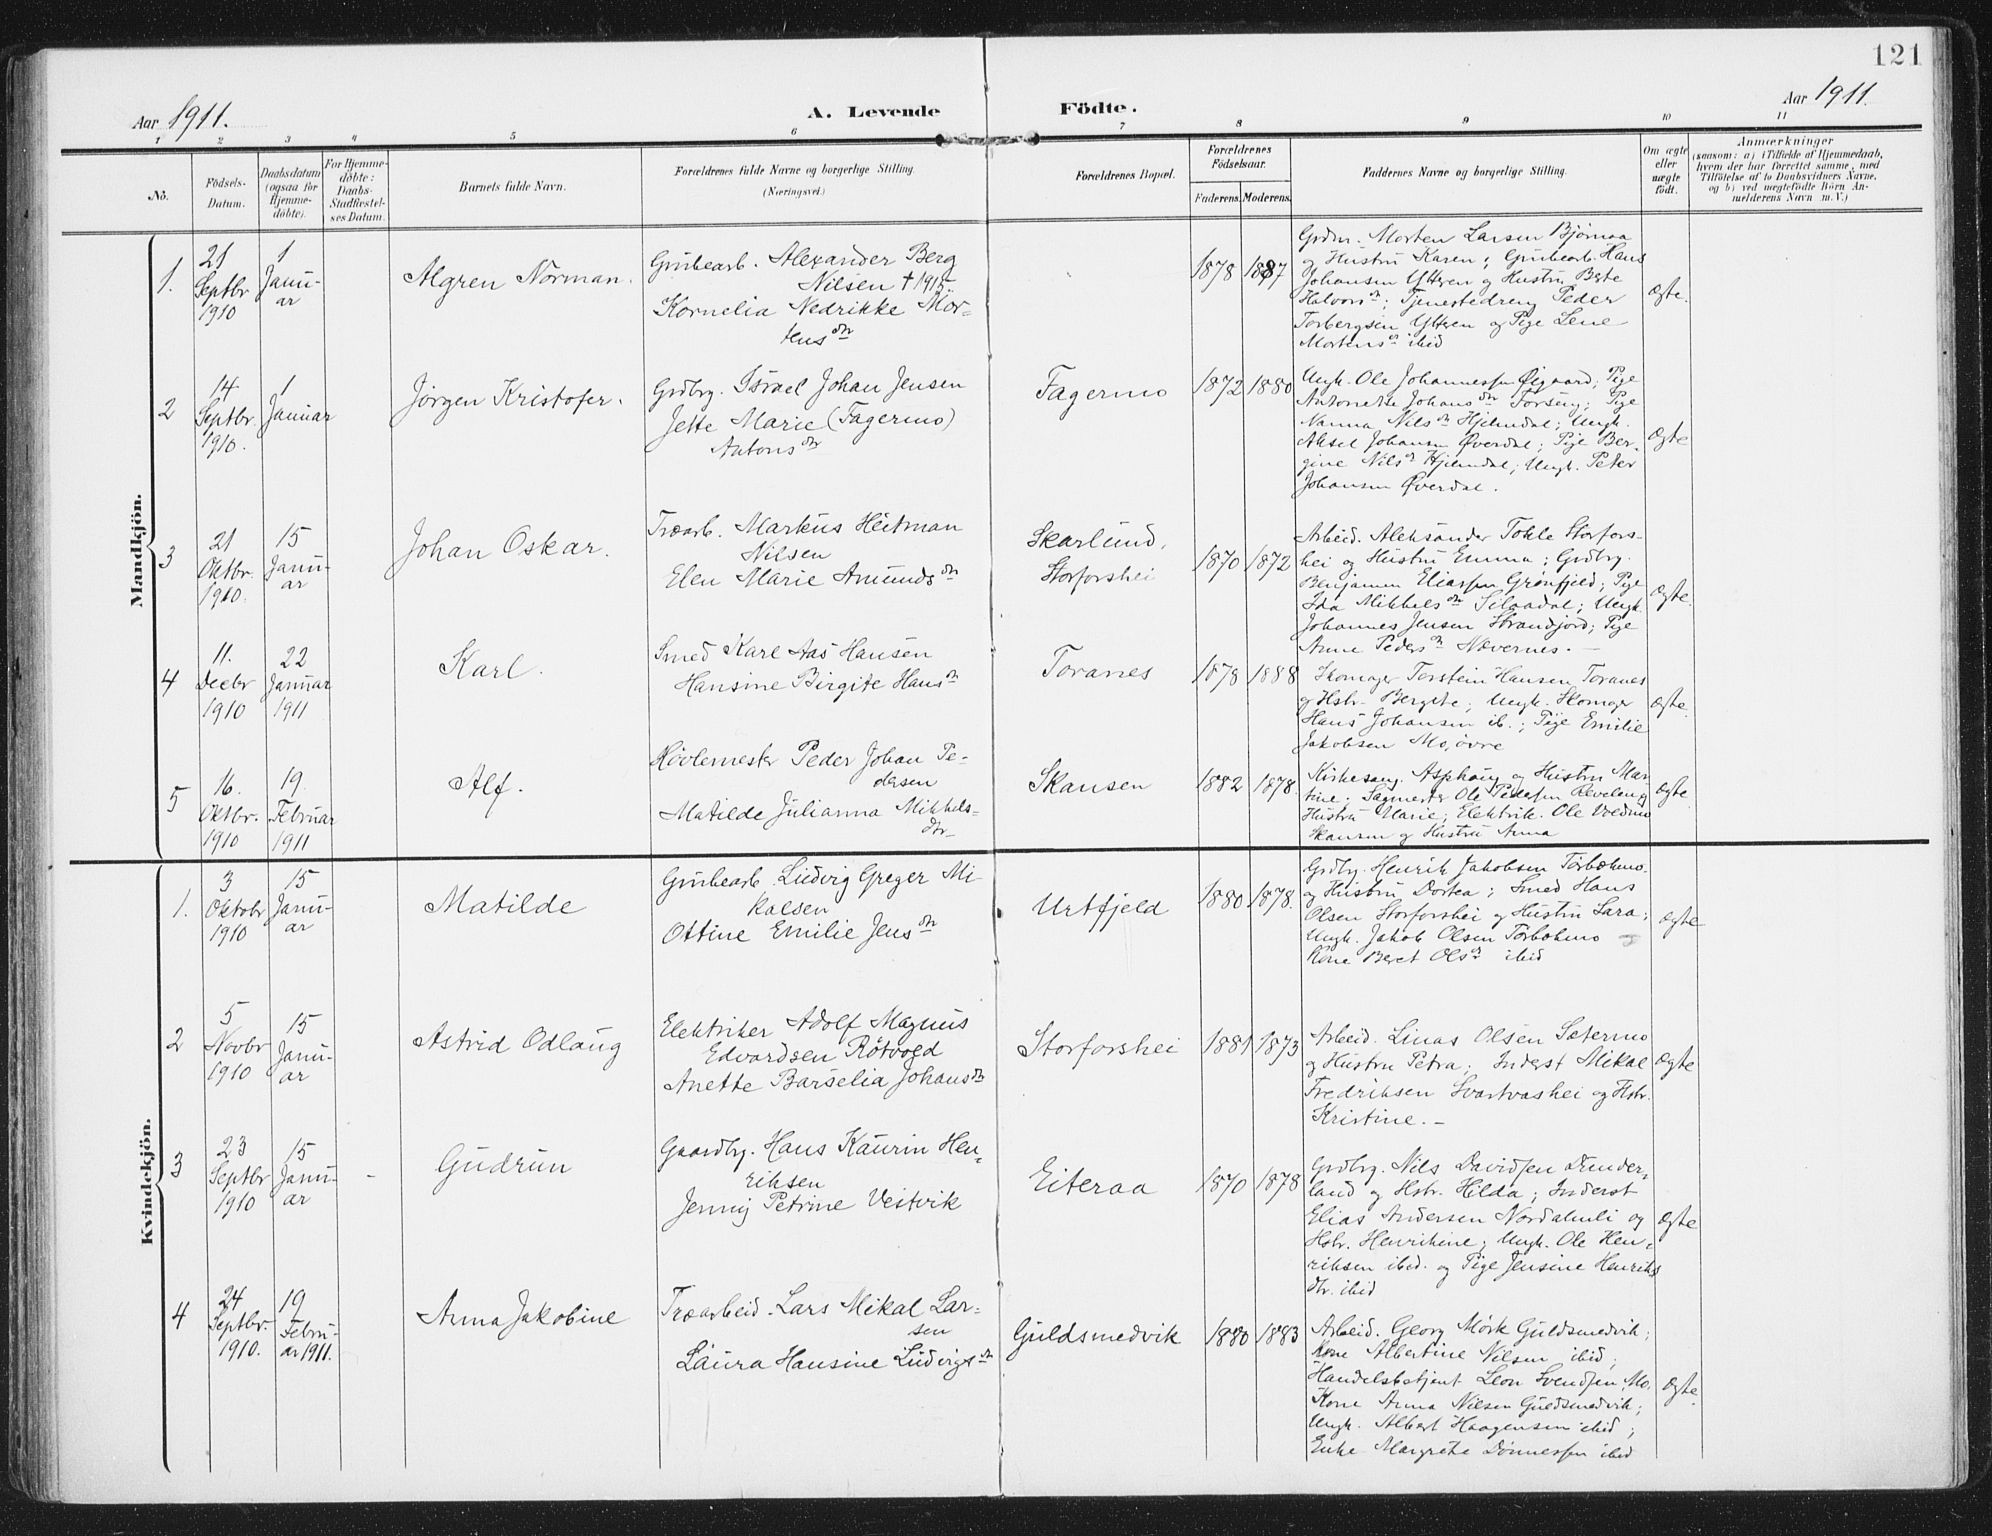 121
Aar 1911.
A. Levende
Födte.
Aar 1911.
1 2 3 4 5 6 7 8 9 10 11
No.
Födsels-
Datum.
Daabsdatum
(ogsaa for
Hjemme-
döbte).
For Hjemme-
döbte:
Daabs-
Stadfæstel-
ses Datum.
Barnets fulde Navn.
Forældrenes fulde Navne og borgerlige Stilling.
(Næringsvei.)
Forældrenes Bopæl.
Forældrenes
Födselsaar.
Faderens. Moderens.
Faddernes Navne og borgerlige Stilling.
Om ægte
eller
uægte
födt.
Anmærkninger
(saasom: a) i Tilfælde af Hjemmedaab,
hvem der har forrettet samme, med
Tilföielse af to Daabsvidners Navne,
og b) ved uægtefödte Börn An-
melderens Navn m. V.)
Mandkjön.
1.
21
Septbr
1910
1
Janu-
ar
Algren Norman.
Grubearb. Alexander Berg
Nilsen † 1915
Kornelia Nedrikke Mor-
tensdr
1878 1887
Grdm. Morten Larsen Bjørnaa
og Hustru Karen; Grubearb. Hans
Johansen Ytteren og Hustru Berte
Halvorsdr; Tjenestedreng Peder
Torbergsen Ytteren og Pige Lene
Mortensdr ibid
Ægte.
2
14
Septbr.
1910.
1
Januar
Jörgen Kristofer.
Grdbrg. Israel Johan Jensen
Jette Marie (Fagermo)
Antonsdr
Fagermo
1872 1880
Ungk. Ole Johannessen Øigaard; Pige
Antonette Johansdr Forseng; Pige
Nanna Nilsdr Hjelmdal; Ungk.
Aksel Johansen Øverdal; Pige Ber-
gine Nilsdr Hjelmdal; Ungk. Peter
Johansen Øverdal.
Ægte
3
21
Oktbr.
1910.
15
Janu-
ar
Johan Oskar.
Træarb. Markus Heitman
Nilsen
Elen Marie Amundsdr
Skarlund,
Storforshei
1870 1872
Arbeid. Aleksander Tokle Storfors-
hei og Hustru Emma; Grdbrg.
Benjamin Eliassen Grønfjeld; Pige
Ida Mikkelsdr Silaadal; Ungk.
Johannes Jensen Strandjord; Pige
Anne Pedersdr Nævernes. —
Ægte.
4
11.
Decbr
1910
22
Januar
1911
Karl.
Smed Karl Aas Hansen
Hansine Birgite Hansdr
Toranes
1878 1888
Skomager Torstein Hansen Toranes
og Hstr. Bergete; Ungk. Skomager
Hans Johansen ib.; Pige Emilie
Jakobsen Mo, øvre
Ægte.
5
16.
Oktbr.
1910
19.
Februar
1911
Alf.
Høvlemester Peder Johan Pe-
dersen
Matilde Julianna Mikkels-
dr
Skansen
1882 1878.
Kirkesang. Asphaug og Hustru Mar-
tine; Sagmester Ole Pedersen Revelen og
Hustru Marie; Elektrik. Ole
Skansen og Hustru Anna
Ægte.
Kvindekjön.
1.
3
Oktobr
1910
15
Janu-
ar
Matilde
Grubearb. Ludvig Greger Mi-
kalsen
Ottine Emilie Jensdr
Urtfjeld
1880 1878.
Grdbrg. Henrik Jakobsen Tørbækmo.
og Hustru Dortea; Smed Hans
Olsen Storforshei og Hustru Sara;
Ungk. Jakob Olsen Tørbækmo
Kone Beret Olsdr ibid
Ægte
2
5
Novbr
1910
15
Janu-
ar
Astrid Odlaug
Elektriker Adolf Magnus
Edvardsen Røtvold
Anette Barselia Johansdr
Storforshei
1881 1873
Arbeid. Linas Olsen Sætermo
og Hustru Petra; Inderst Mikal
Fredriksen Svartvashei og Hstr.
Kristine. —
Ægte
3
23
Septbr
1910
15
Janu-
ar
Gudrun
Gaardbrg. Hans Kaurin Hen-
riksen
Jenny Petrine Vestvik
Eiteraa
1870 1878
Grdbrg. Nils Davidsen Dunder-
land og Hstr. Hilda; Inderst
Elias Andersen Nordahnli og
Hstr. Henrikine; Ungk. Ole Hen-
riksen ibid. og Pige Jensine Henriks
dr. ibid
Ægte
4
24
Septbr.
1910.
19
Febru-
ar 1911.
Anna Jakobine
Træarbeid. Lars Mikal Lar-
sen
Laura Hansine Ludvigsdr
Guldsmedvik
1880 1883
Arbeid. Georg Mørk Guldsmedvik;
Kone Albertine Nilsen ibid;
Handelsbetjent Leon Svendsen, Mo.
Kone Anna Nilsen Guldsmedvik;
Ungk. Albert Haagensen ibid;
Enke Margrete Dønnessen ibid
Ægte.